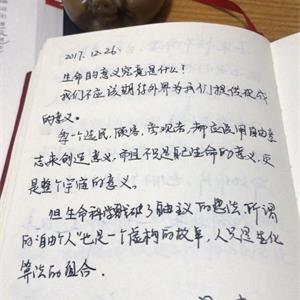 2017. 12. 26.
生命的意义究竟是什么!
我们不应该期待外界为我们提供现成
的意义。
每个选民、顾客、旁观者,都应该用自由意
志来创造意义,而且不只是自己生命的意义,更
是整个宇宙的意义。
但生命科学破了自由议的想法,所谓
的"自由个人"也是一个虚构的故事,人只是生化
算法的组合。